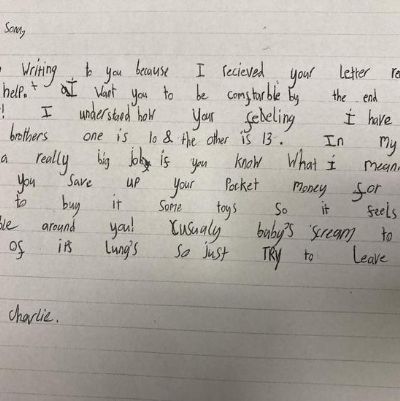 Sonny
Writing to you because I recieved your letter re
help. I want you to be comftarble by the end
! I understand how your febeling I have
brothers one is 10 & the other is 13. In my
a really big job is you know what I mean
you save up your Pocket money for
to buy it some toys so it feels
le around you! usualy baby's scream to
of it's lung's so just TRY to Leave
Charlie.